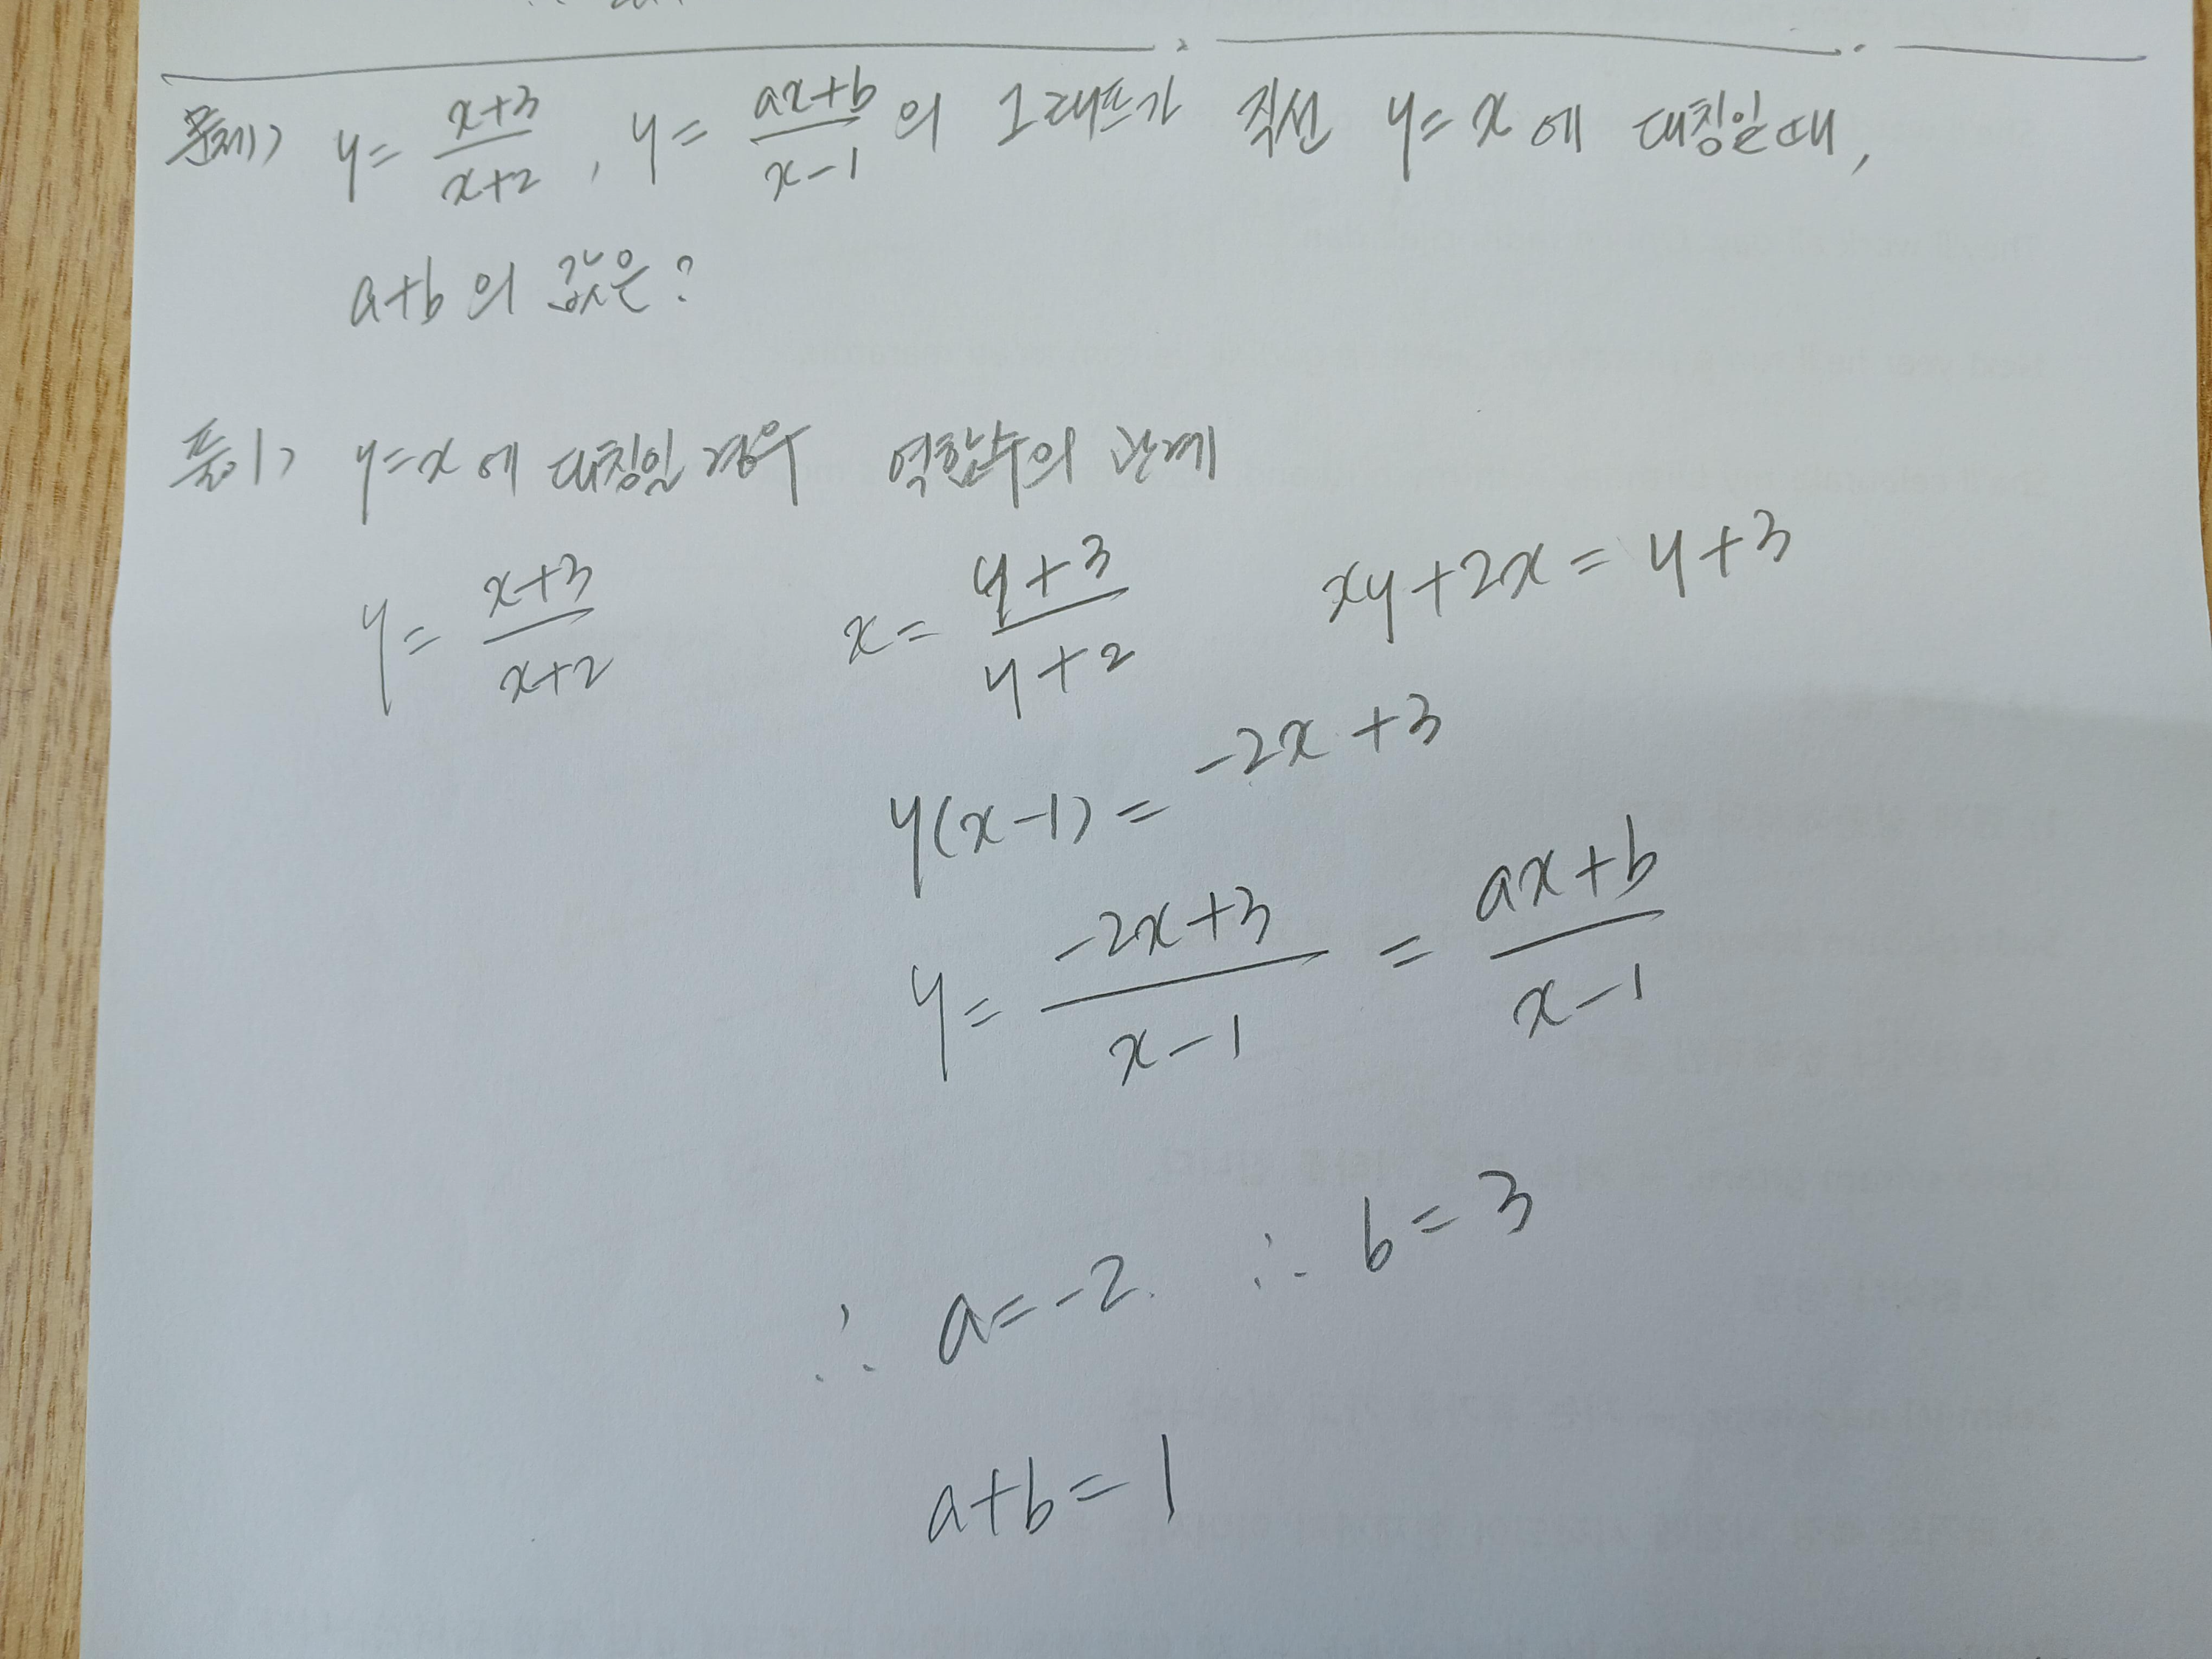 문제) y = \frac{x+3}{x+2} , y = \frac{ax+b}{x-1} 의 그래프가 직선 y=x 에 대칭일 때,
a+b 의 값은?
풀이) y=x 에 대칭일 경우 역함수의 관계
y = \frac{x+3}{x+2} x = \frac{y+3}{y+2} xy+2x = y+3
y(x-1) = -2x+3
y = \frac{-2x+3}{x-1} = \frac{ax+b}{x-1}
∴ a=-2. ∴ b=3
a+b=1